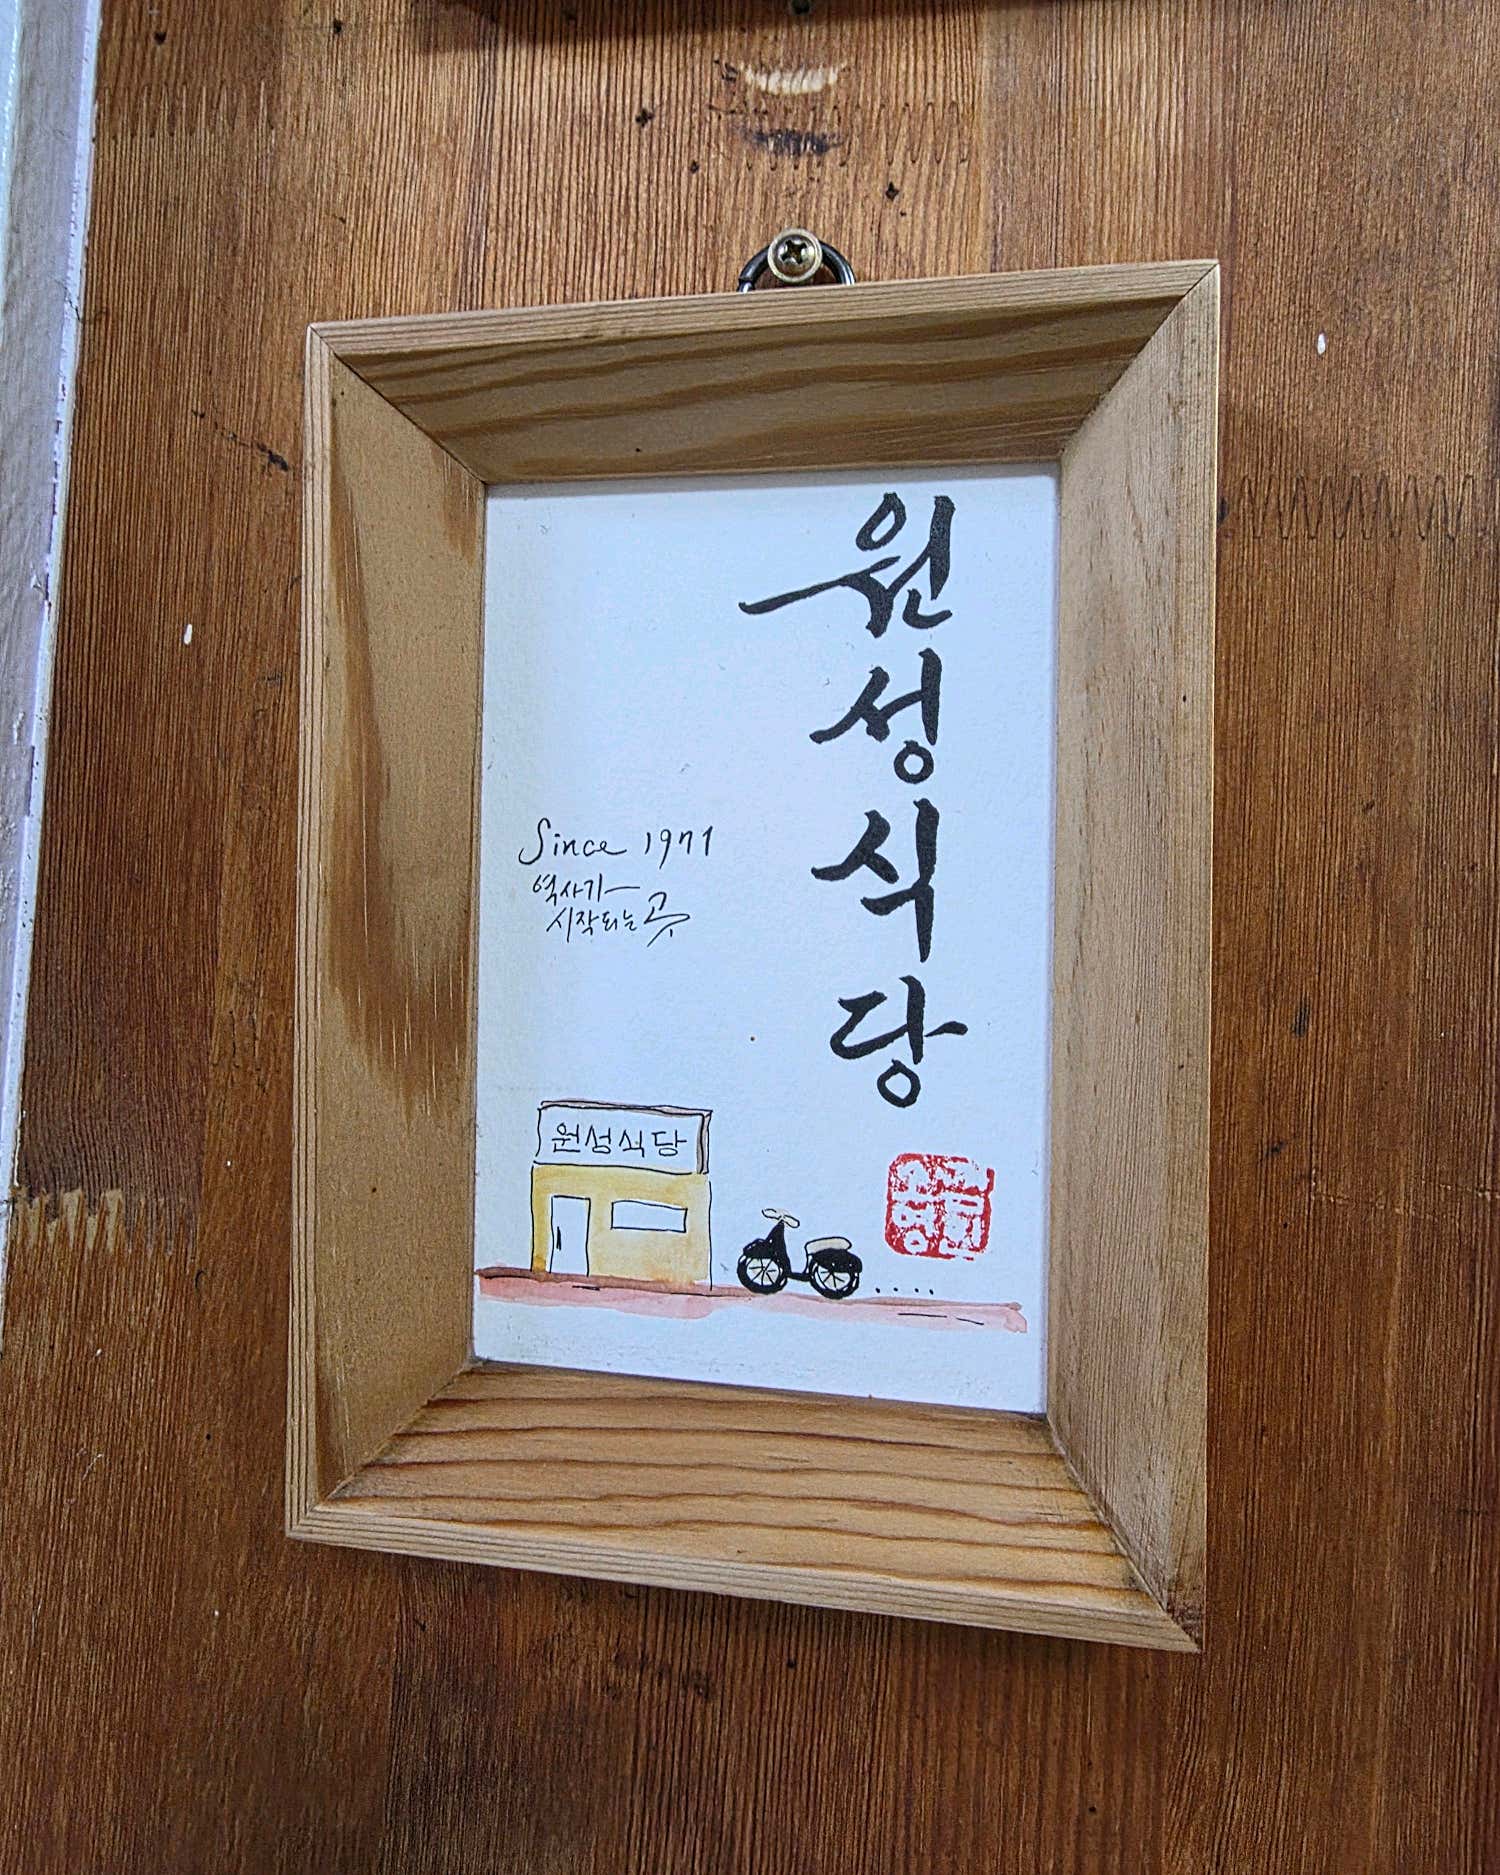 원성식당
Since 1971
역사가
시작되는 곳
원성식당